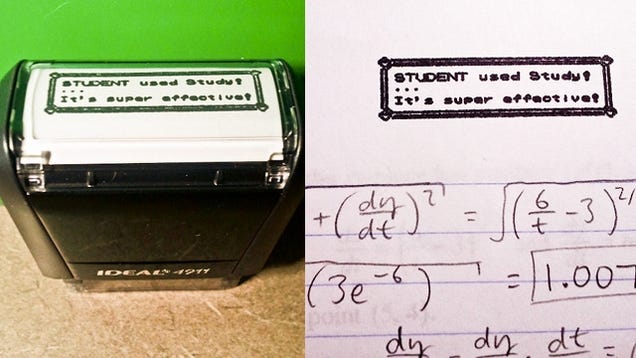 STUDENT used Study!
...
It's super effective!
IDEAL 4911
STUDENT used Study!
...
It's super effective!
+ (dy/dt)² = √(6/t - 3)²/
(3e⁻⁶) = 1.007
point (5, 4).
dy dy . dt =